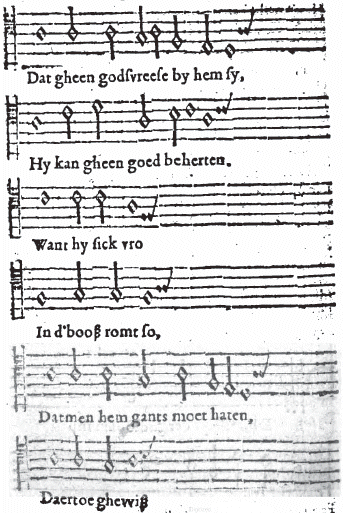 Dat gheen godſvreeſe by hem ſy,
Hy kan gheen goed beherten.
Want hy ſick vro
In d'booß romt ſo,
Datmen hem gants moet haten,
Daertoe ghewiß